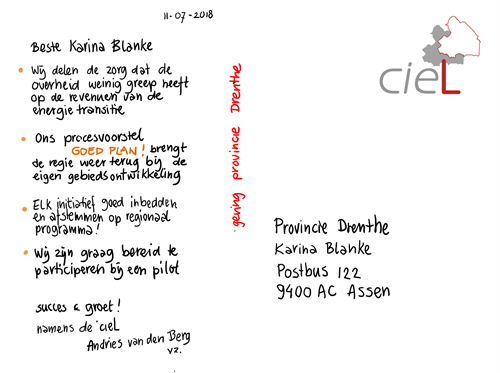 11-07-2018
Beste Karina Blanke
• Wij delen de zorg dat de
overheid weinig greep heeft
op de revenuen van de
energie transitie
• Ons procesvoorstel
GOED PLAN! brengt
de regie weer terug bij de
eigen gebiedsontwikkeling
• ELK initiatief goed inbedden
en afstemmen op regionaal
programma!
• Wij zijn graag bereid te
participeren bij een pilot
succes & groet!
namens de ciel
Andries van den Berg
vz.
gering provincie Drenthe
cieL
Provincie Drenthe
Karina Blanke
Postbus 122
9400 AC Assen